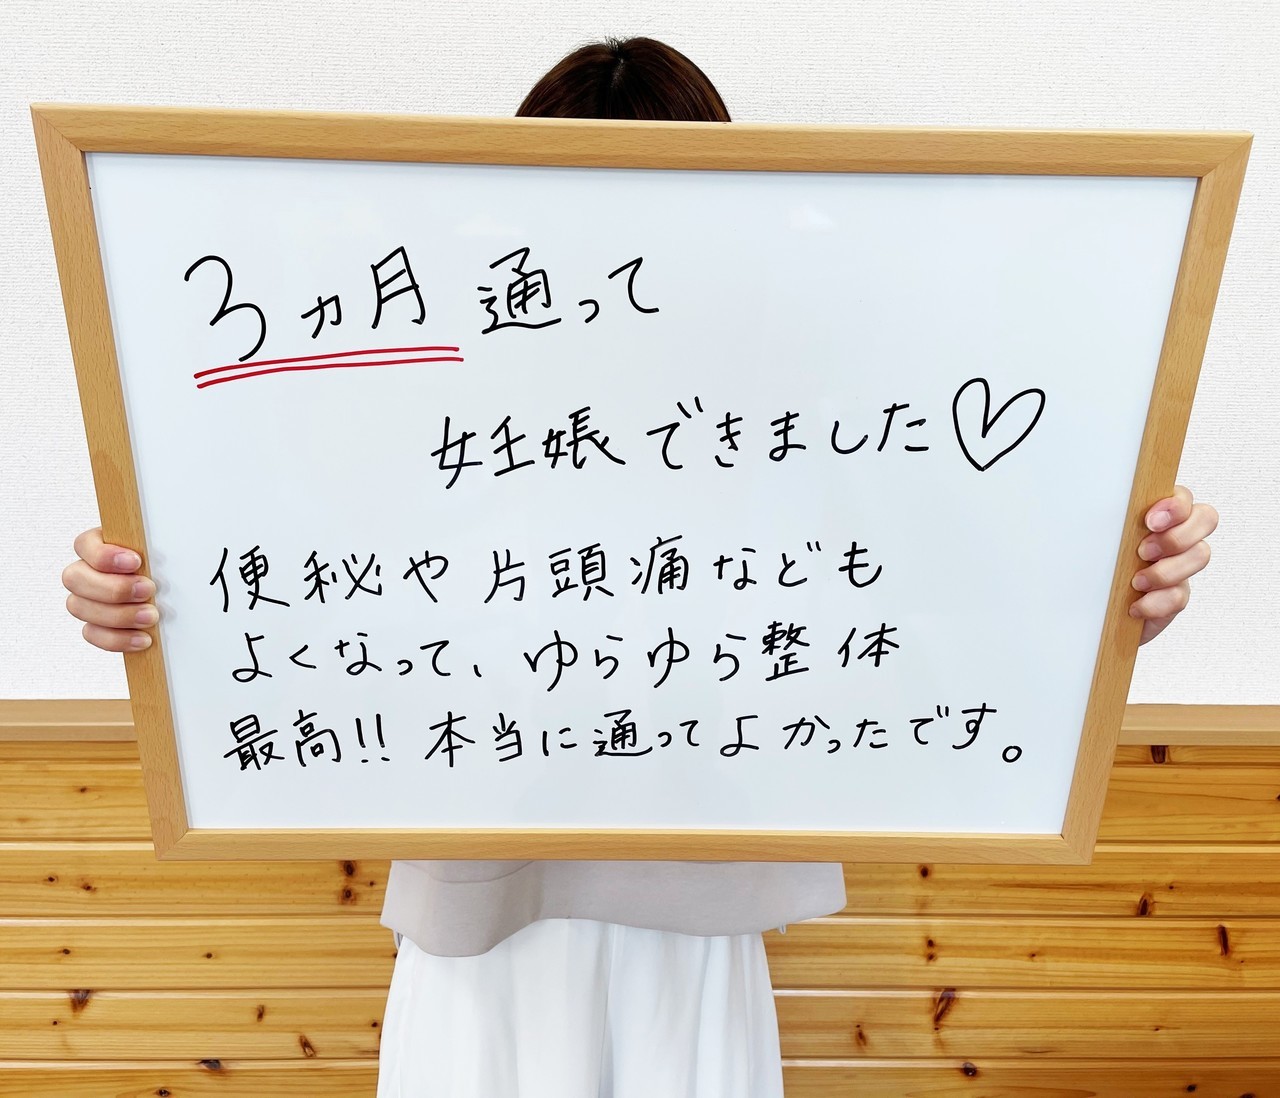 3ヵ月通って
妊娠できました♡
便秘や片頭痛なども
よくなって、ゆらゆら整体
最高!! 本当に通ってよかったです。